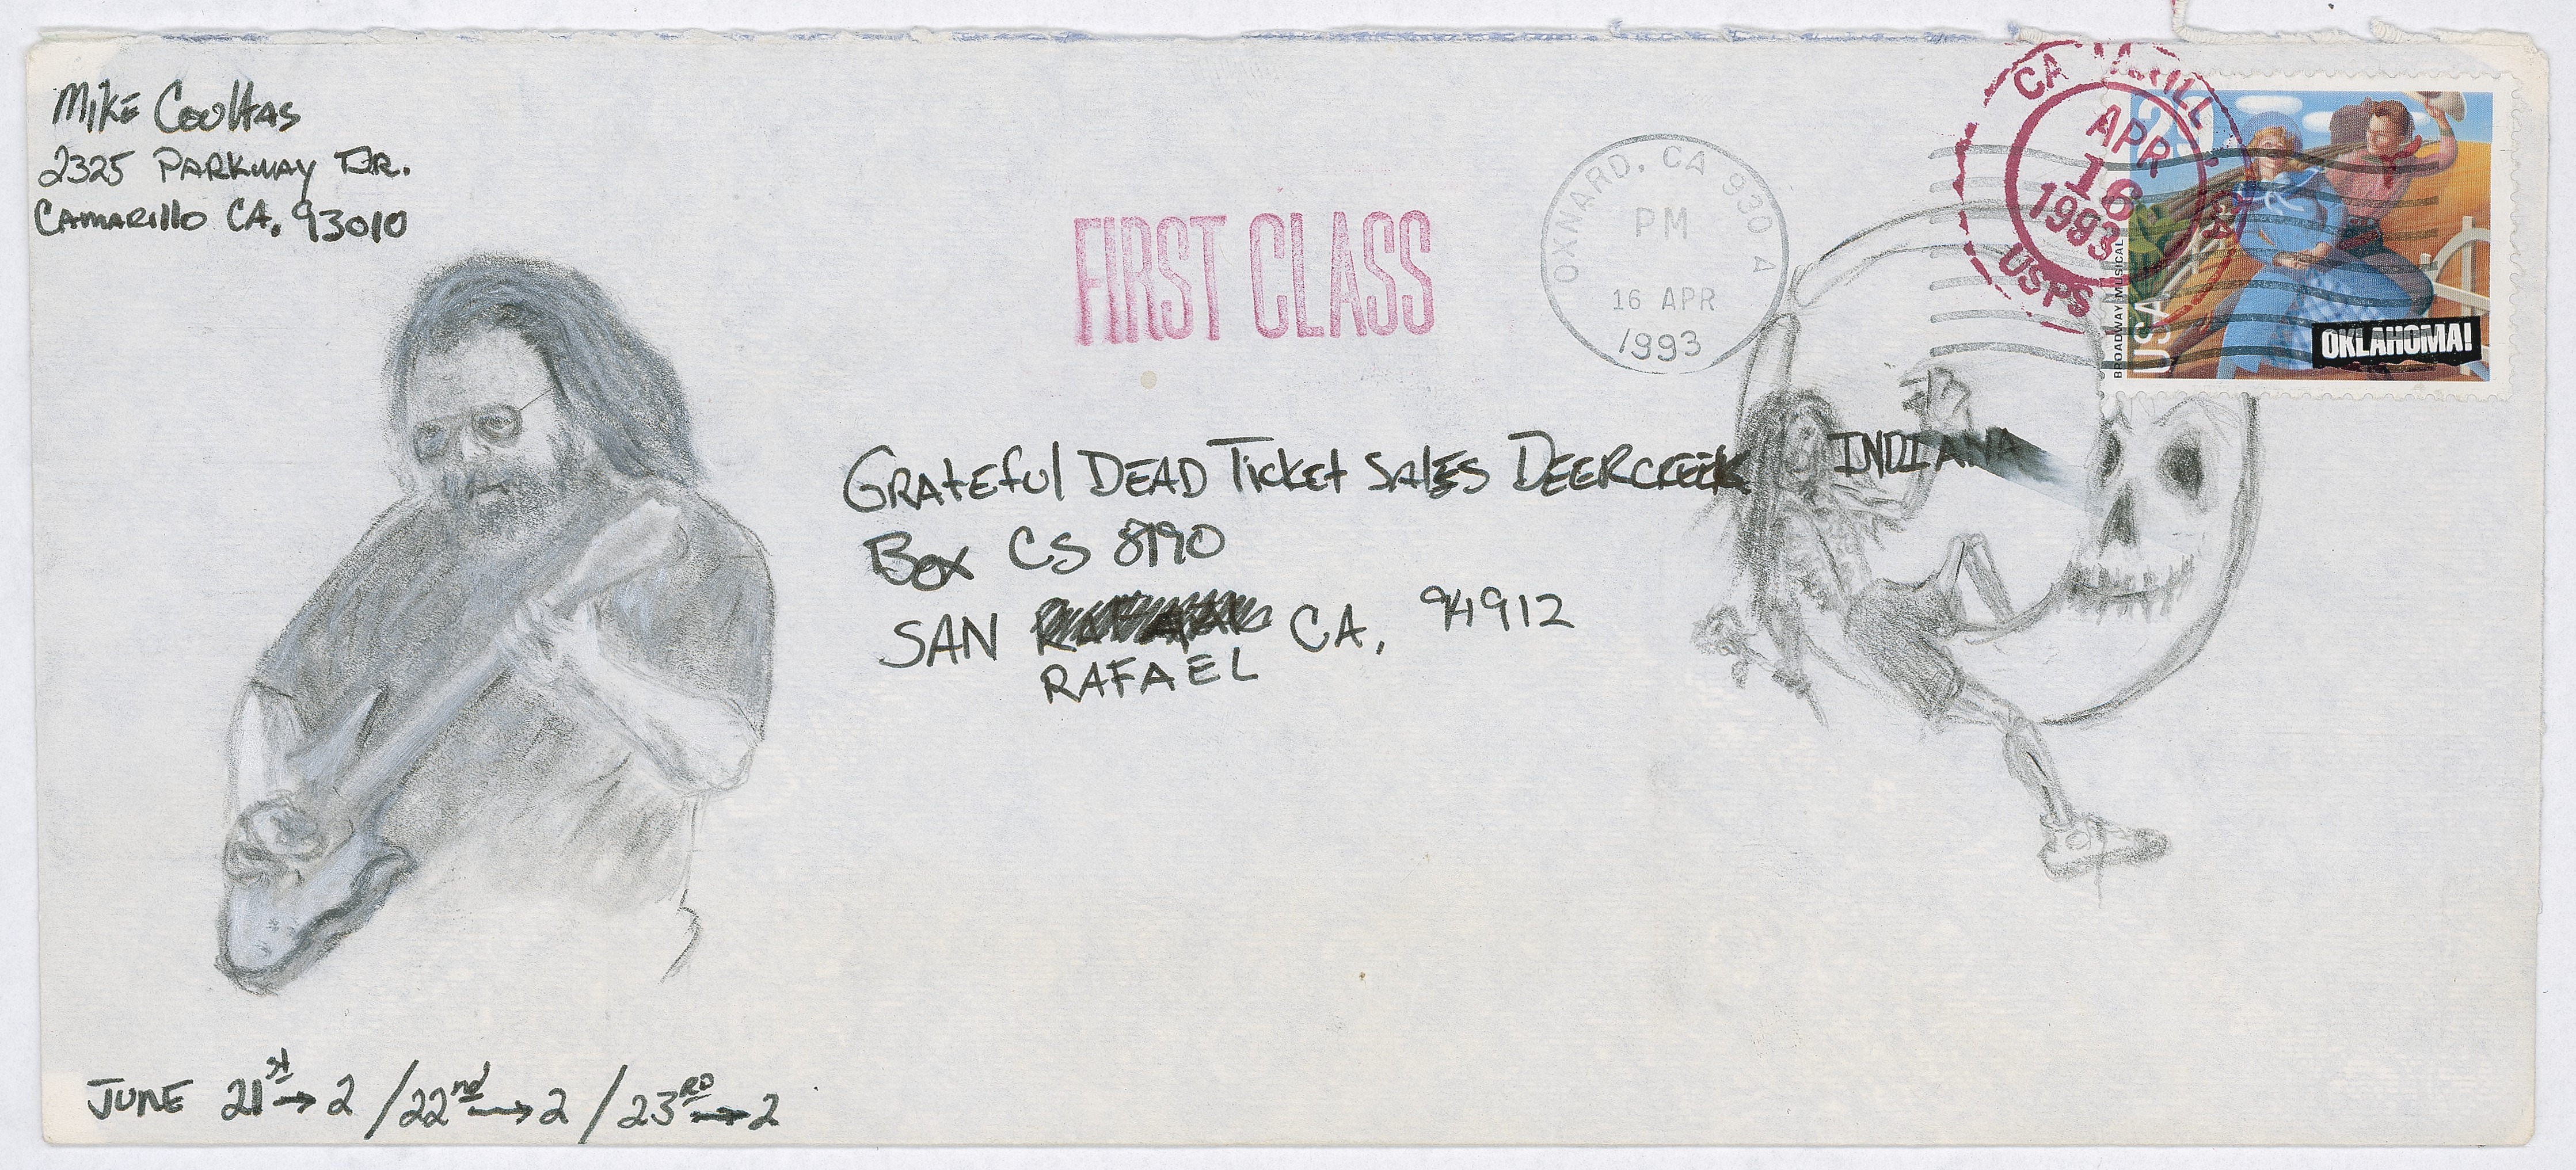 Mike Coultas
2325 Parkway Dr.
Camarillo CA. 93010
FIRST CLASS
OXNARD, CA 930 A
PM
16 APR
1993
CA RILL CA
APR
16
1993
USPS
29
USA
BROADWAY MUSICAL
OKLAHOMA!
Grateful Dead Ticket Sales Deercreek INDIANA
Box CS 8190
SAN CA. 94912
RAFAEL
June 21st → 2 / 22nd → 2 / 23RD → 2